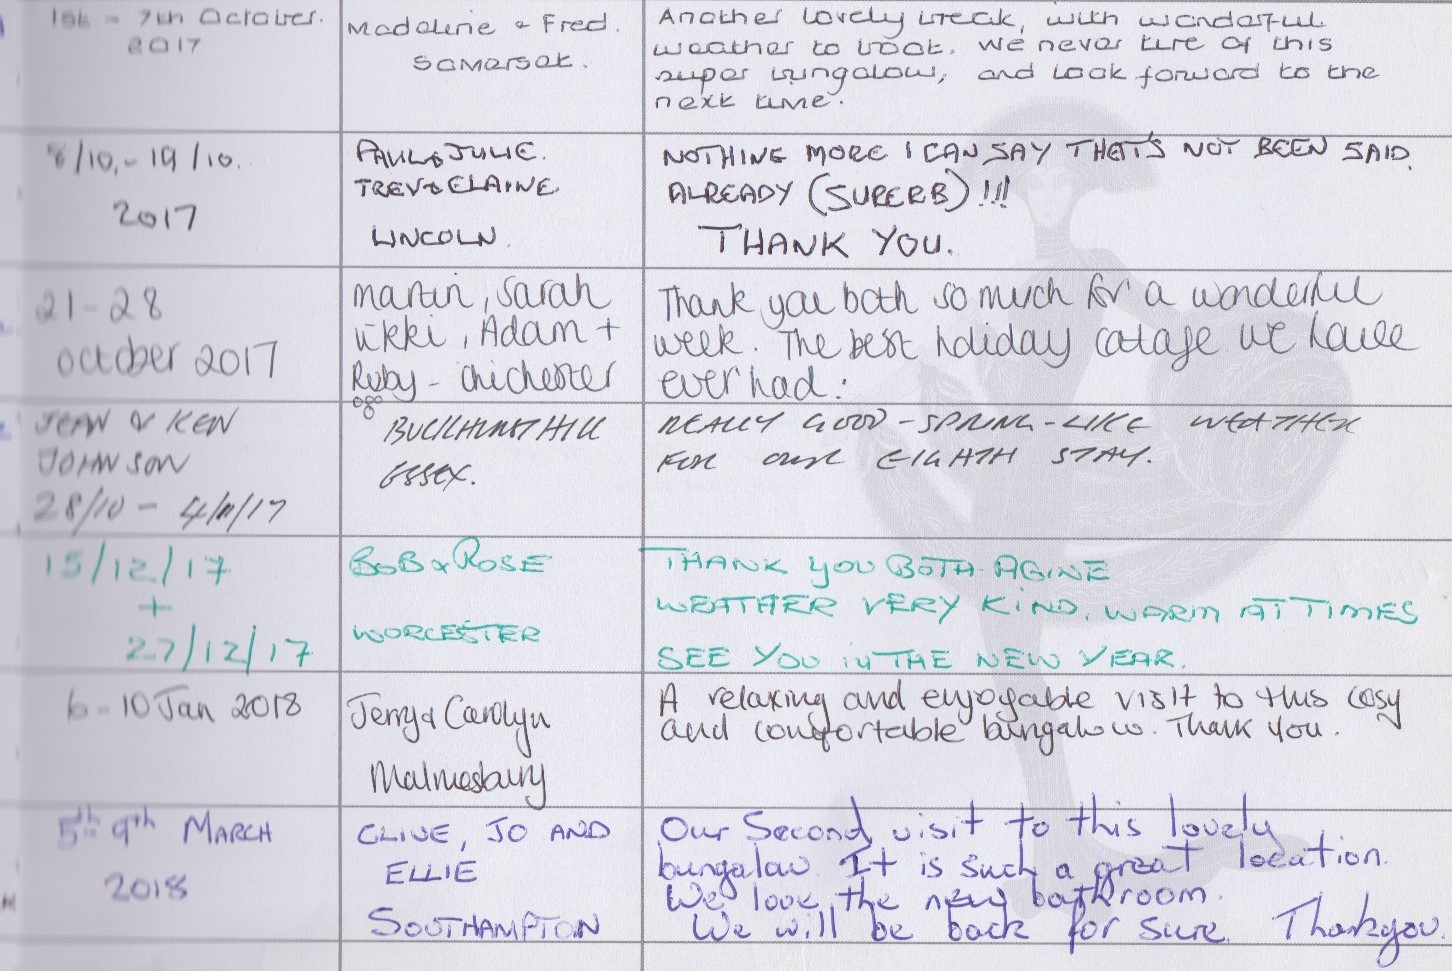 1st - 7th October.
2017
Madaleine & Fred.
Somerset.
Another lovely break, with wonderful
weather to boot. We never tire of this
super bungalow, and look forward to the
next time.
8/10, - 19/10.
2017
PAUL & JULIE.
TREV & ELAINE
LINCOLN.
NOTHING MORE I CAN SAY THAT'S NOT BEEN SAID
ALREADY (SUPERB) !!!
THANK YOU.
21-28
October 2017
Martin, Sarah
Vikki, Adam +
Ruby - Chichester
Thank you both so much for a wonderful
week. The best holiday cotage we have
ever had.
JEAN & KEN
JOHNSON
28/10 - 4/11/17
BUCKHURST HILL
ESSEX.
REALLY GOOD - SPRING - LIKE WEATHER
FOR OUR EIGHTH STAY.
15/12/17
+
27/12/17
BOB & ROSE
WORCESTER
THANK YOU BOTH AGINE
WEATHER VERY KIND. WARM AT TIMES
SEE YOU IN THE NEW YEAR.
6-10 Jan 2018
Jerry & Carolyn
Malmesbury
A relaxing and enjoyable visit to this cosy
and comfortable bungalow. Thank you.
5th - 9th MARCH
2018
CLIVE, JO AND
ELLIE
SOUTHAMPTON
Our Second visit to this lovely
bungalow. It is such a great location.
We love the new bathroom.
We will be back for sure. Thankyou.